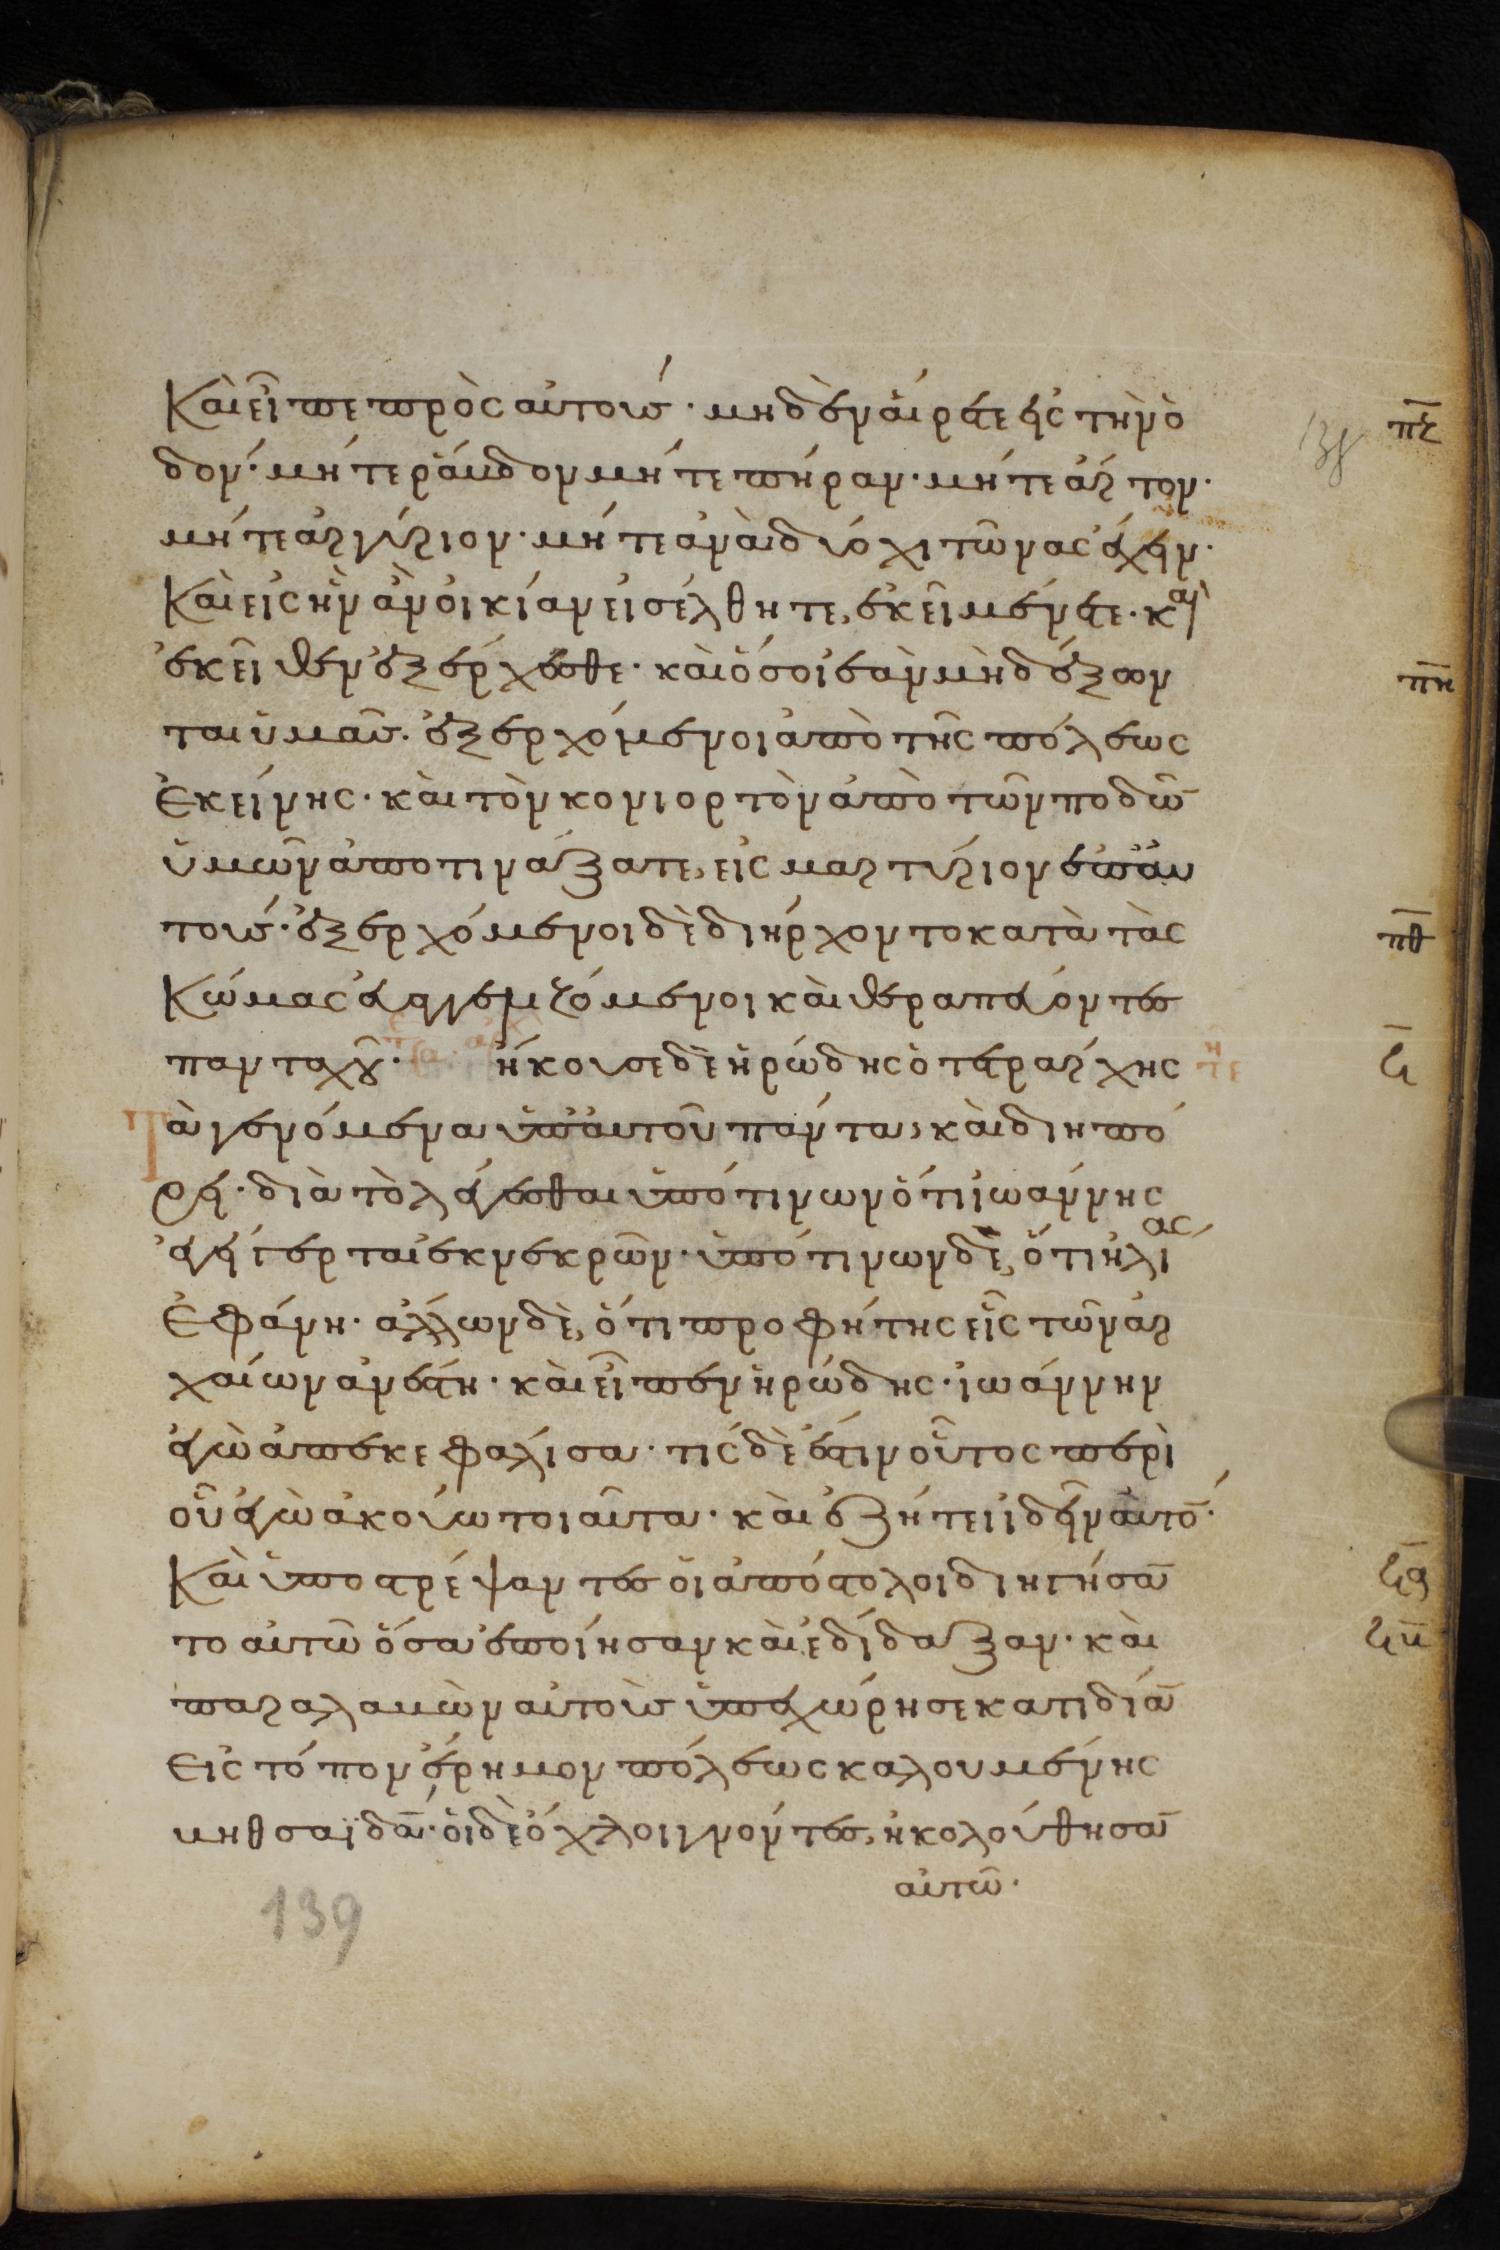 Καὶ εἶπε πρὸς αὐτούς· μηδὲν αἴρετε εἰς τὴν ὁ
δόν· μήτε ῥάβδον μήτε πήραν· μήτε ἄρτον·
μήτε ἀργύριον· μήτε ἀνὰ δύο χιτῶνας ἔχειν·
Καὶ εἰς ἣν ἂν οἰκίαν εἰσέλθητε, ἐκεῖ μένετε· καὶ
ἐκεῖθεν ἐξέρχεσθε· καὶ ὅσοι ἐὰν μὴ δέξων
ται ὑμᾶς· ἐξερχόμενοι ἀπὸ τῆς πόλεως
Ἐκείνης· καὶ τὸν κονιορτὸν ἀπὸ τῶν ποδῶ̅
ὑμῶν ἀποτινάξατε, εἰς μαρτύριον ἐπ' αὐ
τούς· ἐξερχόμενοι δὲ διήρχοντο κατὰ τὰς
Κώμας εὐαγγελιζόμενοι καὶ θεραπεύοντες
πανταχοῦ· ἤκουσε δὲ ἡρώδης ὁ τετράρχης
Τὰ γενόμενα ὑπ' αὐτοῦ πάντα, καὶ διηπό
ρει· διὰ τὸ λέγεσθαι ὑπό τινων ὅτι ἰωάννης
ἐγήγερται ἐκ νεκρῶν· ὑπό τινων δὲ, ὅτι ἠλίας
Ἐφάνη· ἄλλων δὲ, ὅτι προφήτης εἷς τῶν ἀρ
χαίων ἀνέστη· καὶ εἶπεν ἡρώδης· ἰωάννην
ἐγὼ ἀπεκεφάλισα· τίς δὲ ἐστιν οὗτος περὶ
οὗ ἐγὼ ἀκούω τοιαῦτα· καὶ ἐζήτει ἰδεῖν αὐτό̅·
Καὶ ὑποστρέψαντες οἱ ἀπόστολοι διηγήσα̅
το αὐτῶ ὅσα ἐποίησαν καὶ ἐδίδαξαν· καὶ
παραλαβὼν αὐτοὺς ὑπεχώρησε κατιδία̅
Εἰς τόπον ἔρημον πόλεως καλουμένης
βηθσαϊδά̅· οἱ δὲ ὄχλοι γνόντες, ἠκολούθησα̅
αὐτῶ·
πη
πθ
139